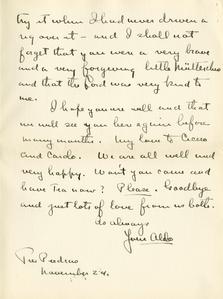 try it when I had never driven a
rig over it – and I shall not
forget that you were a very brave
and a very forgiving little
and that the Ford was very kind to
me.
I hope you are well and that
we will see you here again before
many months. My love to Cicero
and Carlo. We are all well and
very happy. Won't you come and
have Tea now? Please. Goodbye
and just lots of love from us both.
As always
Your Aldo
Tres Piedras
November 24.